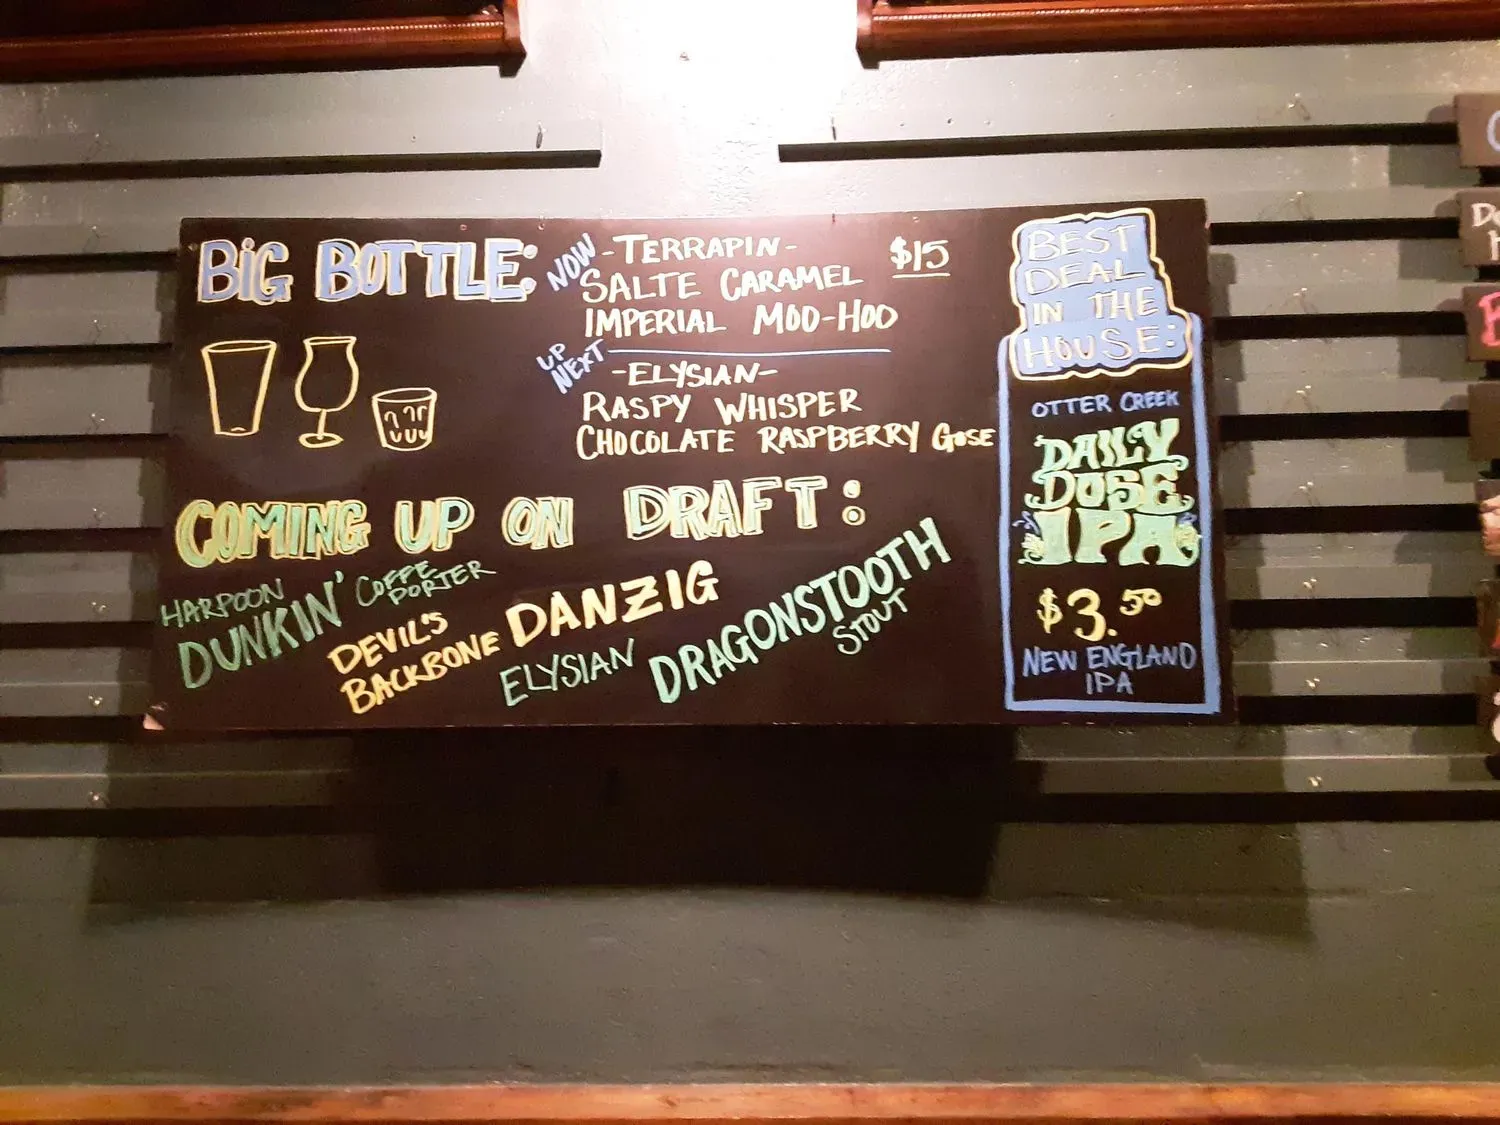 BIG BOTTLE:
NOW
-TERRAPIN-
$15
SALTE CARAMEL
IMPERIAL MOO-HOO
UP
NEXT
-ELYSIAN-
RASPY WHISPER
CHOCOLATE RASPBERRY GOSE
COMING UP ON DRAFT:
HARPOON
DUNKIN'
COFFE
PORTER
DEVIL'S
BACKBONE
DANZIG
ELYSIAN
DRAGONSTOOTH
STOUT
BEST
DEAL
IN THE
HOUSE:
OTTER CREEK
DAILY
DOSE
IPA
$3.50
NEW ENGLAND
IPA